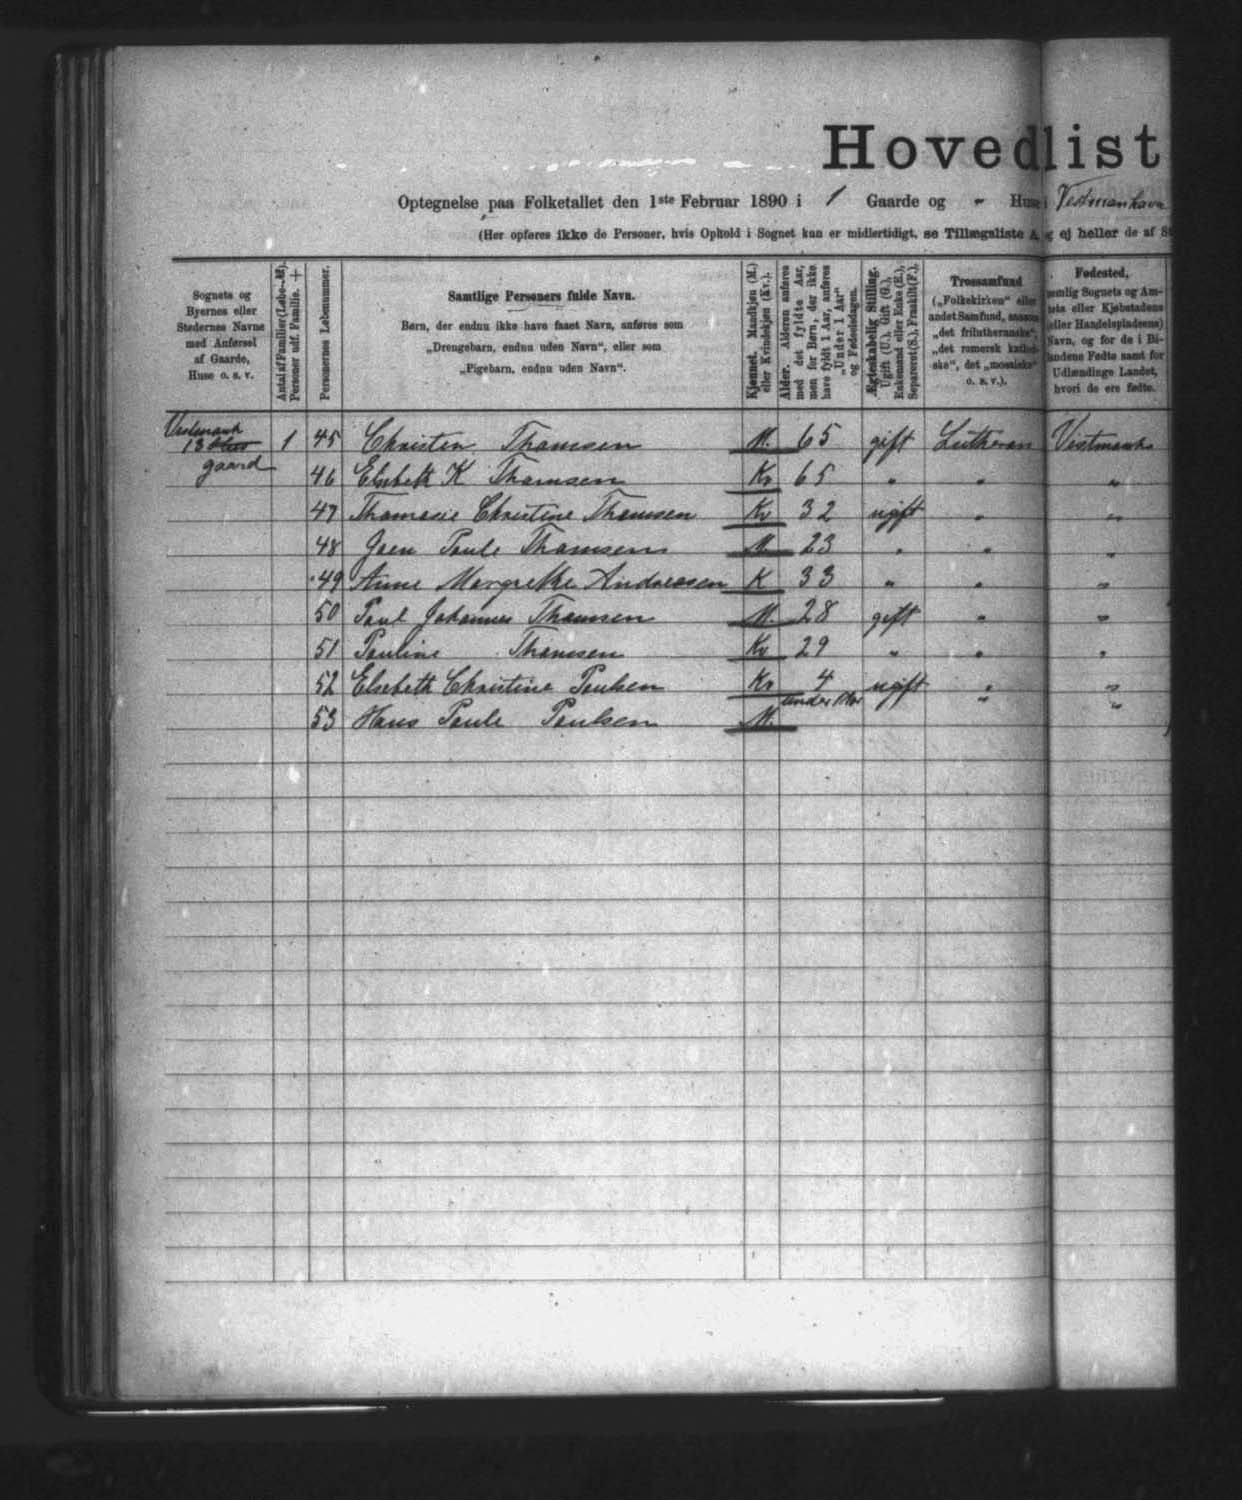 Hovedlist
Optegnelse paa Folketallet den 1ste Februar 1890 i 1 Gaarde og " Huse i Vestmanhavn
(Her opføres ikke de Personer, hvis Ophold i Sognet kun er midlertidigt, se Tillægsliste A, og ej heller de af
Sognets og
Byernes eller
Stedernes Navne
med Anførsel
af Gaarde,
Huse o. s. v.
Antal af Familier (Løbe-№).
Personer udf. Familie. +
Personernes Løbenummer.
Samtlige Personers fulde Navn.
Børn, der endnu ikke have faaet Navn, anføres som
„Drengebarn, endnu uden Navn", eller som
„Pigebarn, endnu uden Navn".
Kjønnet. Mandkjøn (M.)
eller Kvindekjøn (Kv.).
Alder. Alderen anføres
med det fyldte Aar,
men for Børn, der ikke
have fyldt 1 Aar, anføres
„Under 1 Aar"
og Fødselsdagen.
Ægteskabelig Stilling.
Ugift (U.), Gift (G.),
Enkemand eller Enke (E.),
Separeret (S.), Fraskilt (F.).
Trossamfund
(„Folkekirken" eller
andet Samfund, saasom
„det frilutheranske",
„det romersk katholske", det „mosaiske"
o. s. v.).
Fødested,
nemlig Sognets og Amtets eller Kjøbstadens
(eller Handelspladsens)
Navn, og for de i Bilandene Fødte samt for
Udlændinge Landet,
hvori de ere fødte.
Vestmanh
13
gaard
1 45 Christen Thomsen M. 65 gift Lutheran Vestmanh
46 Elsebeth K Thomsen Kv 65 " " "
47 Thomasie Christine Thomsen Kv 32 ugift " "
48 Joen Paule Thomsen M. 23 " " "
49 Anne Margrethe Andreasen K 33 " " "
50 Poul Johannes Thomsen M. 28 gift " "
51 Pauline Thomsen Kv 29 " " "
52 Elsebeth Christine Poulsen Kv 4 ugift " "
53 Hans Paule Poulsen M. under 1 Aar " "